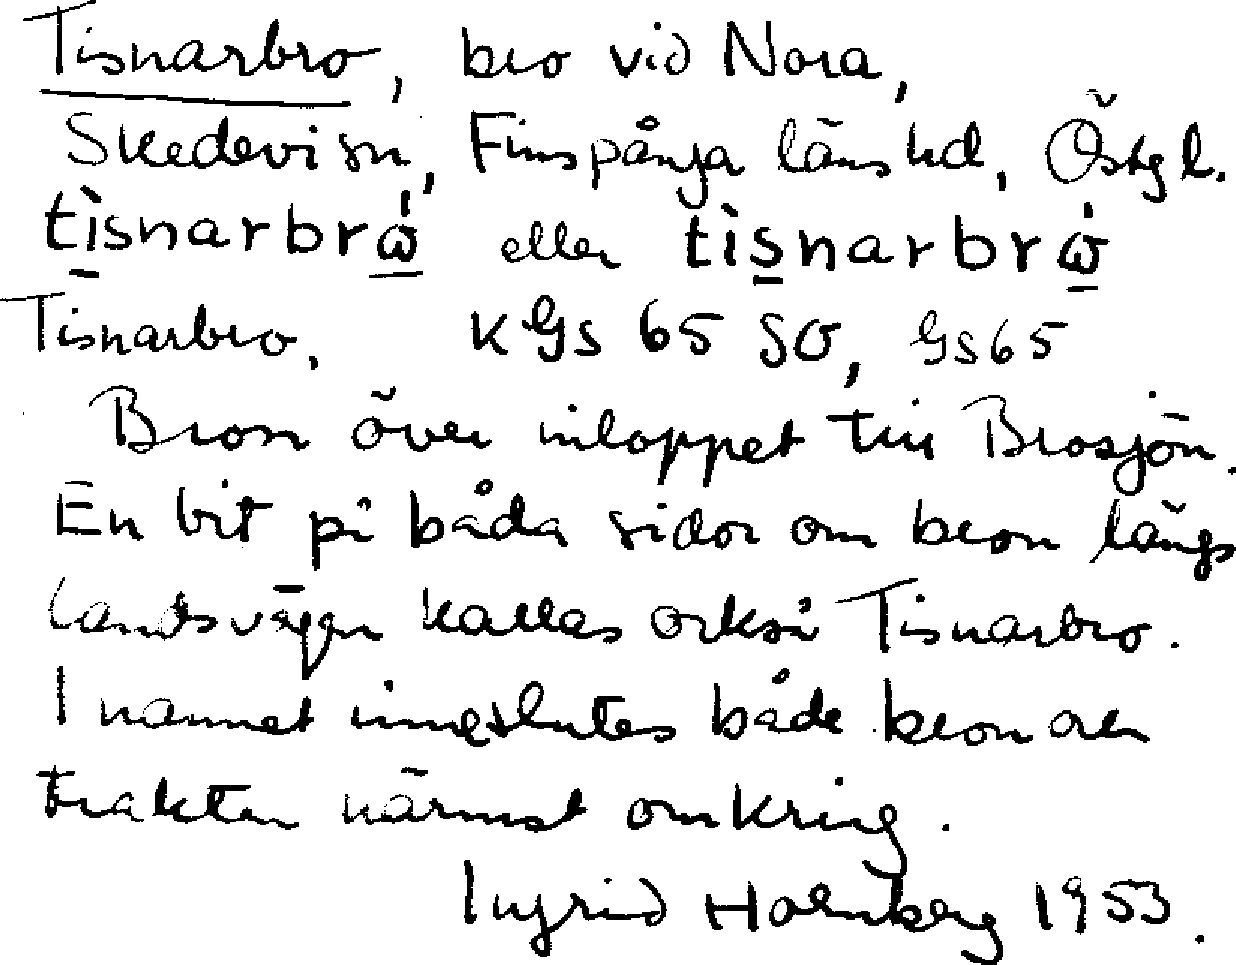 Tisnarbro, bro vid Nora,
Skedevi sn, Finspånga läns hd, Östgl.
tìsnarbrὼ eller tìsnarbrὼ
Tisnarbro. KGS 65 SO, GS65
Bron över inloppet till Brosjön.
En bit på båda sidor om bron längs
landsvägen kallas också Tisnarbro.
I namnet inneslutes både bron och
trakten närmst omkring.
Ingrid Holmberg 1953.